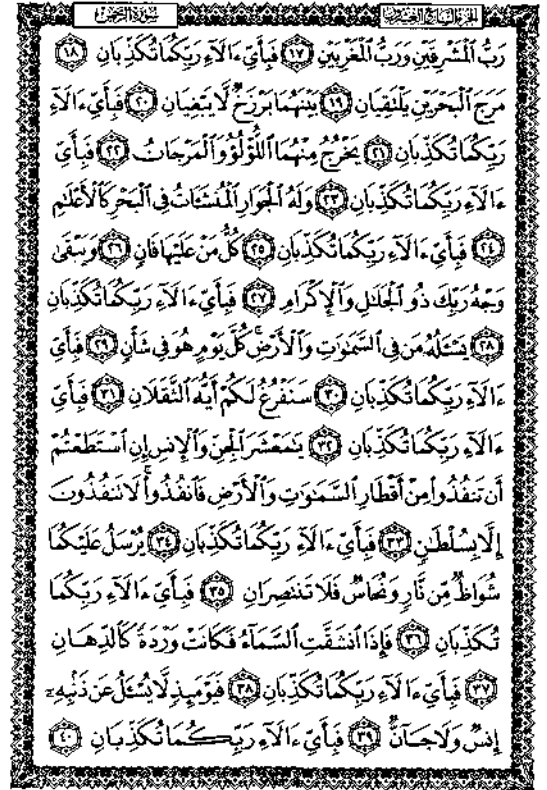 الجزء السابع والعشرون سورة الرحمن
رَبُّ ٱلْمَشْرِقَيْنِ وَرَبُّ ٱلْمَغْرِبَيْنِ ١٧ فَبِأَىِّ ءَالَآءِ رَبِّكُمَا تُكَذِّبَانِ ١٨
مَرَجَ ٱلْبَحْرَيْنِ يَلْتَقِيَانِ ١٩ بَيْنَهُمَا بَرْزَخٌ لَّا يَبْغِيَانِ ٢٠ فَبِأَىِّ ءَالَآءِ
رَبِّكُمَا تُكَذِّبَانِ ٢١ يَخْرُجُ مِنْهُمَا ٱللُّؤْلُؤُ وَٱلْمَرْجَانُ ٢٢ فَبِأَىِّ
ءَالَآءِ رَبِّكُمَا تُكَذِّبَانِ ٢٣ وَلَهُ ٱلْجَوَارِ ٱلْمُنشَـَٔاتُ فِى ٱلْبَحْرِ كَٱلْأَعْلَـٰمِ
٢٤ فَبِأَىِّ ءَالَآءِ رَبِّكُمَا تُكَذِّبَانِ ٢٥ كُلُّ مَنْ عَلَيْهَا فَانٍ ٢٦ وَيَبْقَىٰ
وَجْهُ رَبِّكَ ذُو ٱلْجَلَـٰلِ وَٱلْإِكْرَامِ ٢٧ فَبِأَىِّ ءَالَآءِ رَبِّكُمَا تُكَذِّبَانِ
٢٨ يَسْـَٔلُهُۥ مَن فِى ٱلسَّمَـٰوَٰتِ وَٱلْأَرْضِ ۚ كُلَّ يَوْمٍ هُوَ فِى شَأْنٍ ٢٩ فَبِأَىِّ
ءَالَآءِ رَبِّكُمَا تُكَذِّبَانِ ٣٠ سَنَفْرُغُ لَكُمْ أَيُّهَ ٱلثَّقَلَانِ ٣١ فَبِأَىِّ
ءَالَآءِ رَبِّكُمَا تُكَذِّبَانِ ٣٢ يَـٰمَعْشَرَ ٱلْجِنِّ وَٱلْإِنسِ إِنِ ٱسْتَطَعْتُمْ
أَن تَنفُذُوا۟ مِنْ أَقْطَارِ ٱلسَّمَـٰوَٰتِ وَٱلْأَرْضِ فَٱنفُذُوا۟ ۚ لَا تَنفُذُونَ
إِلَّا بِسُلْطَـٰنٍ ٣٣ فَبِأَىِّ ءَالَآءِ رَبِّكُمَا تُكَذِّبَانِ ٣٤ يُرْسَلُ عَلَيْكُمَا
شُوَاظٌ مِّن نَّارٍ وَنُحَاسٌ فَلَا تَنتَصِرَانِ ٣٥ فَبِأَىِّ ءَالَآءِ رَبِّكُمَا
تُكَذِّبَانِ ٣٦ فَإِذَا ٱنشَقَّتِ ٱلسَّمَآءُ فَكَانَتْ وَرْدَةً كَٱلدِّهَانِ
٣٧ فَبِأَىِّ ءَالَآءِ رَبِّكُمَا تُكَذِّبَانِ ٣٨ فَيَوْمَئِذٍ لَّا يُسْـَٔلُ عَن ذَنۢبِهِۦٓ
إِنسٌ وَلَا جَآنٌّ ٣٩ فَبِأَىِّ ءَالَآءِ رَبِّكُمَا تُكَذِّبَانِ ٤٠